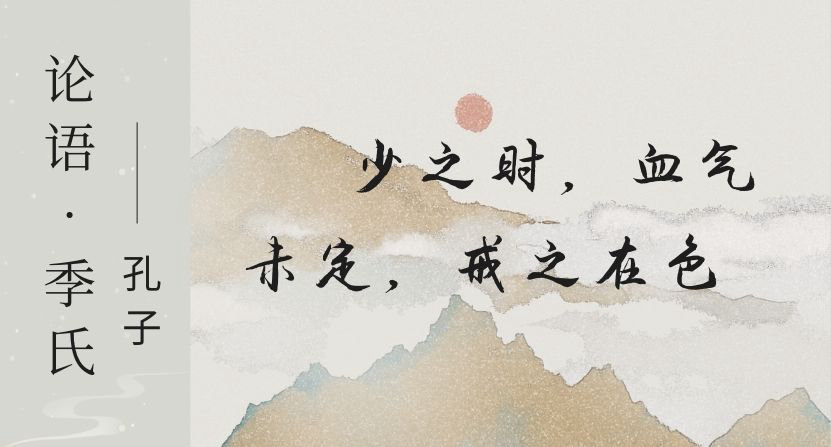 论语·季氏
——孔子
少之时，血气
未定，戒之在色